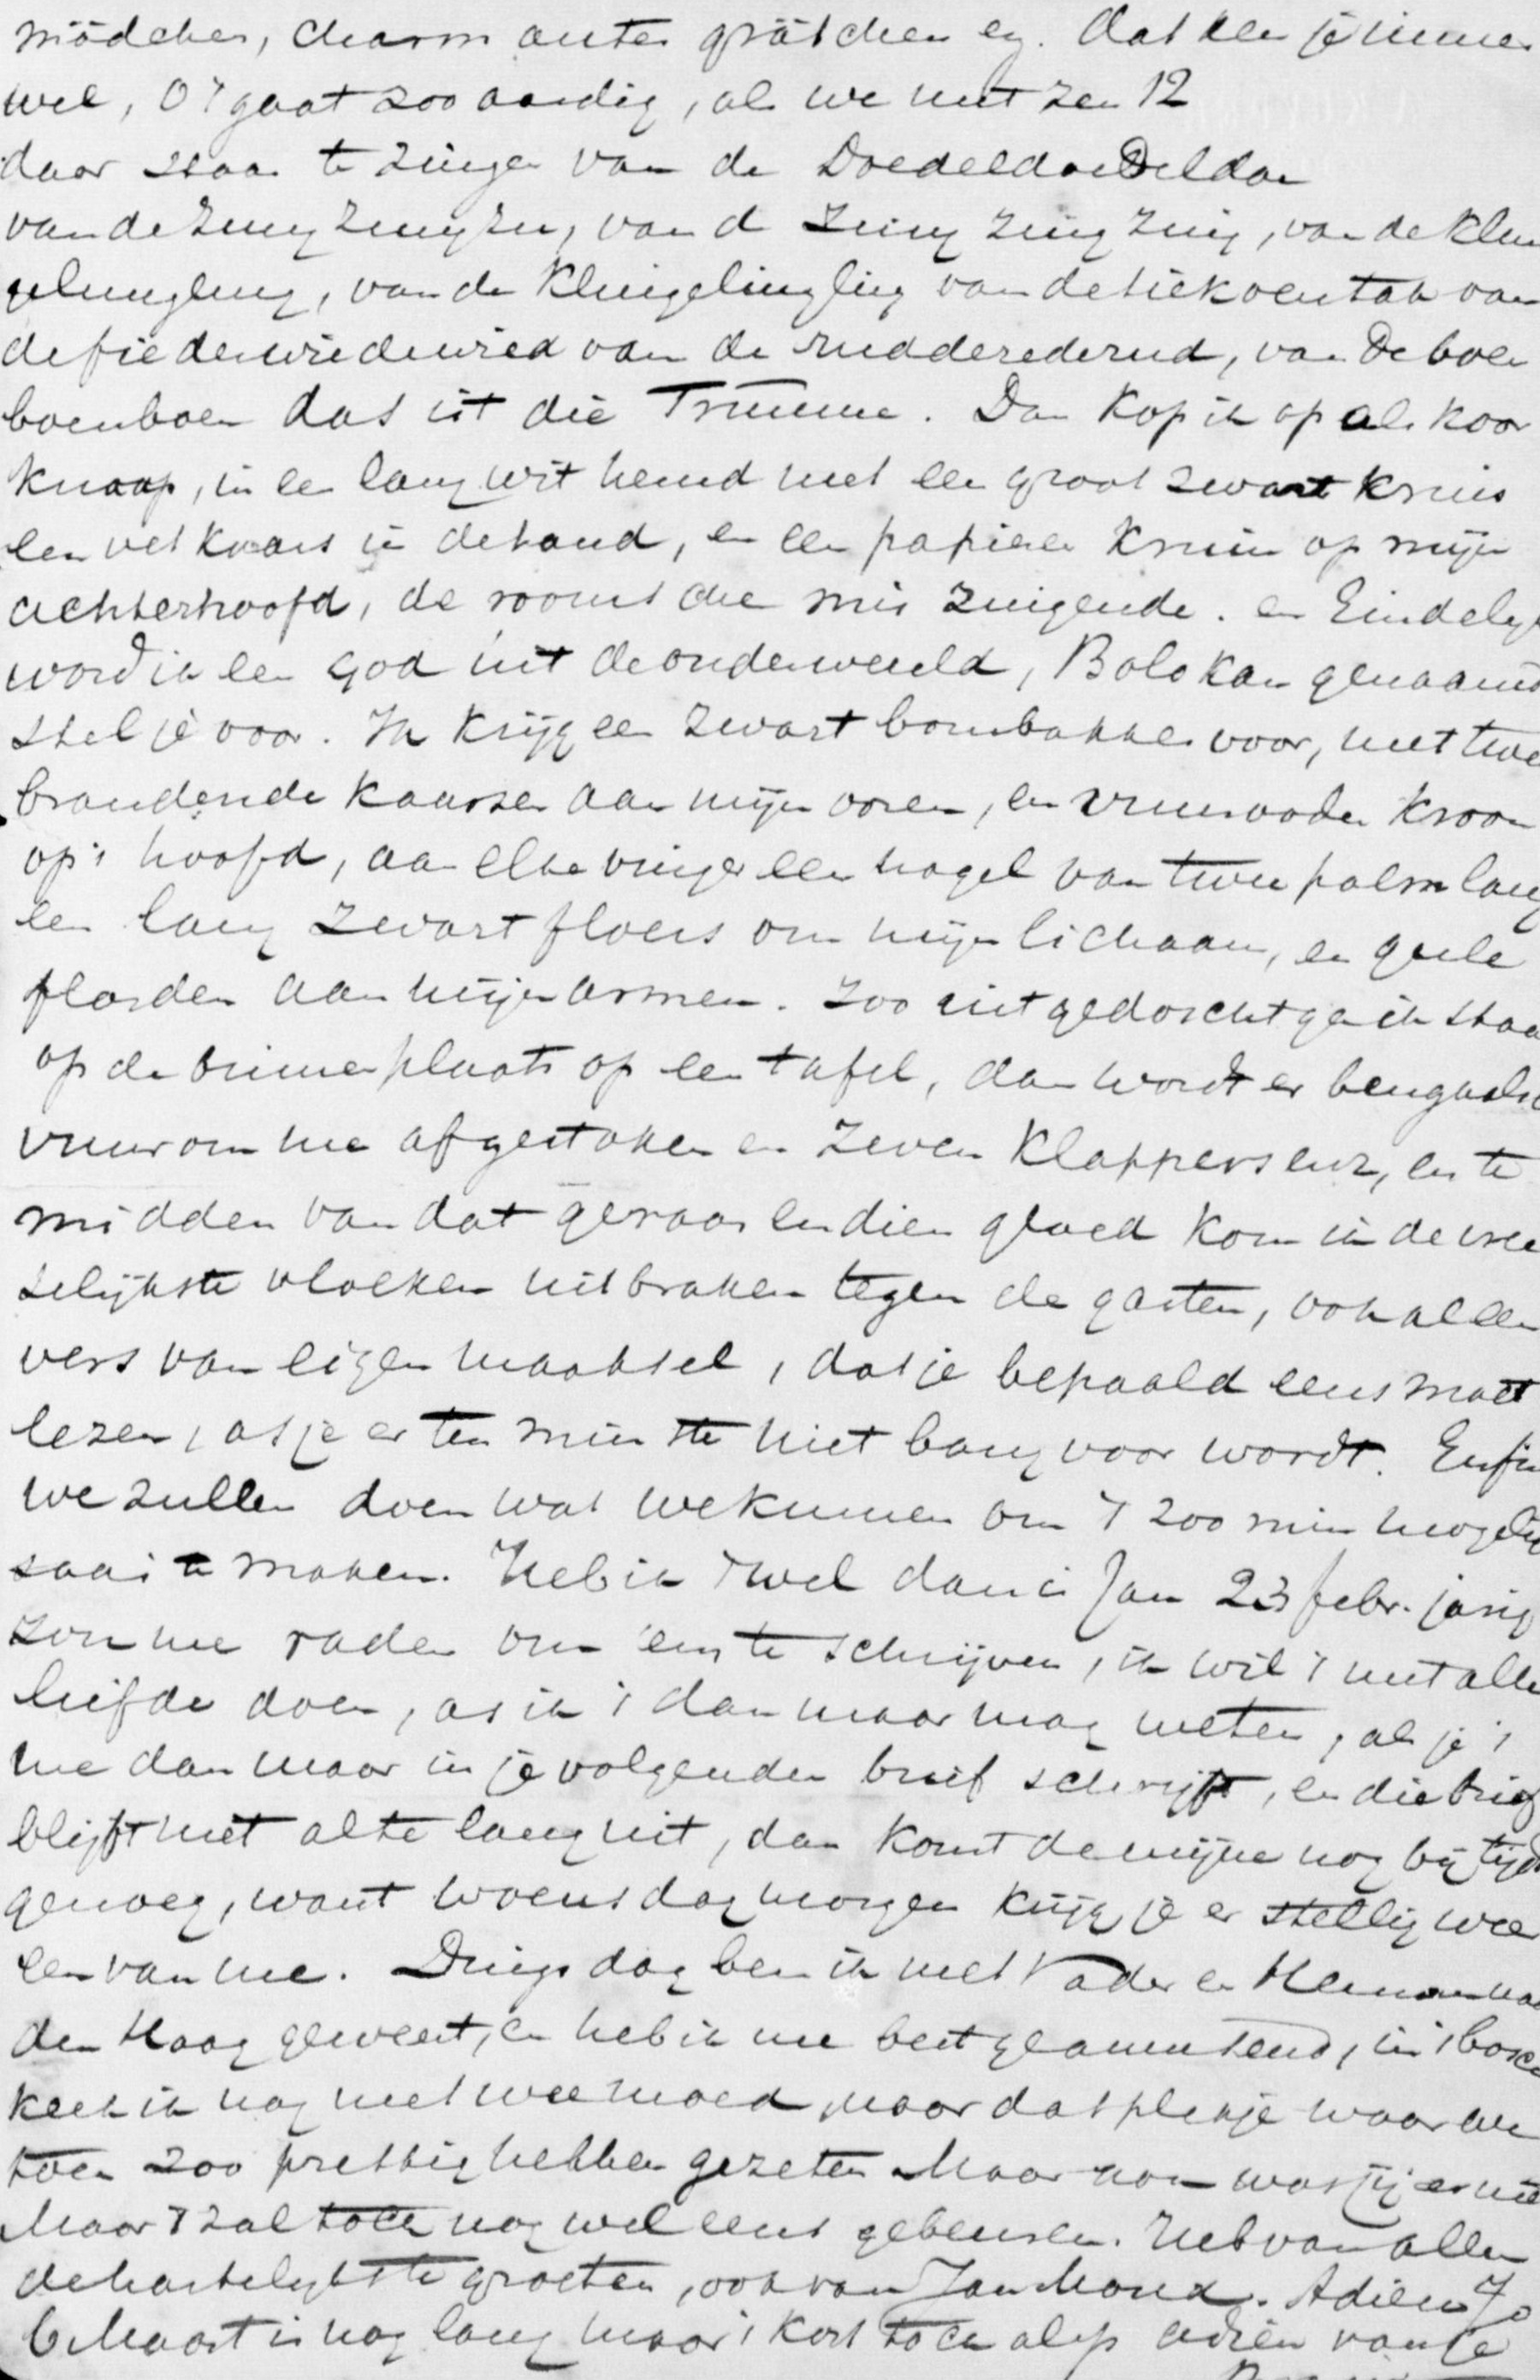 mädchen, charmantes grätchen eg. dat ken je immer
wel, 't gaat zoo aardig, als we met zen 12
daar staan te zingen van de Doedeldoedeldoe
van de zung zung zung, van d zing zing zing, van de klun
gelunglung, van de klingelingling van de tiekoentak van
de fiedewiedewied van de rudderederud, van De boen
boenboen das ist die Trumme. Dan kop ik op als koor
knaap, in een lang wit hemd met een groot zwart kruis
een vetkaars in de hand, en een papieren kruin op mijn
achterhoofd, de roomsche mis zingende. en Eindelijk
word ik een god uit de onderwereld, Bolokan genaamd
stel je voor. Ik krijg een zwart bombakkes voor, met twee
brandende kaarsen aan mijn ooren, en vuurrooden kroon
op 't hoofd, aan elke vinger een nagel van twee palm lang
een lang zwart floers om mijn lichaam, en geele
flarden aan mijn armen. Zoo uitgedoscht ga ik staan
op de binnenplaats op een tafel, dan wordt er bengaalsch
vuur om me afgestoken en zeven Klappers enz, en te
midden van dat geraas en dien gloed kom ik de vree
selijkste vloeken uitbraken tegen de gasten, ook al een
vers van eigen maaksel, dat je bepaald eens moet
lezen, as je er ten minste niet bang voor wordt. Enfin
we zullen doen wat we kunnen om 't zoo min mogelijk
saai te maken. Heb ik 't wel dan is Jan 23 febr. jarig
zou me raden om 'em te schrijven, ik wil 't met alle
liefde doen, as ik 't dan maar mag weten, als je 't
me dan maar in je volgenden brief schrijft, en die brief
blijft niet al te lang uit, dan komt de mijne nog bij tijds
genoeg, want woensdag morgen krijg je er stellig weer
een van me. Dingsdag ben ik met Vader en Herman naar
den Haag geweest, en heb ik me best geamuseerd, in 't bosch
keek ik nog met weemoed naar dat plekje waar we
toen zoo prettig hebben gezeten Maar nou was jij er niet
Maar 't zal toch nog wel eens gebeuren. Heb van allen
de hartelijkste groeten, ook van Jan Maur. Adieu Jo
6 Maart is nog lang maar 't kort toch alop adieu van je